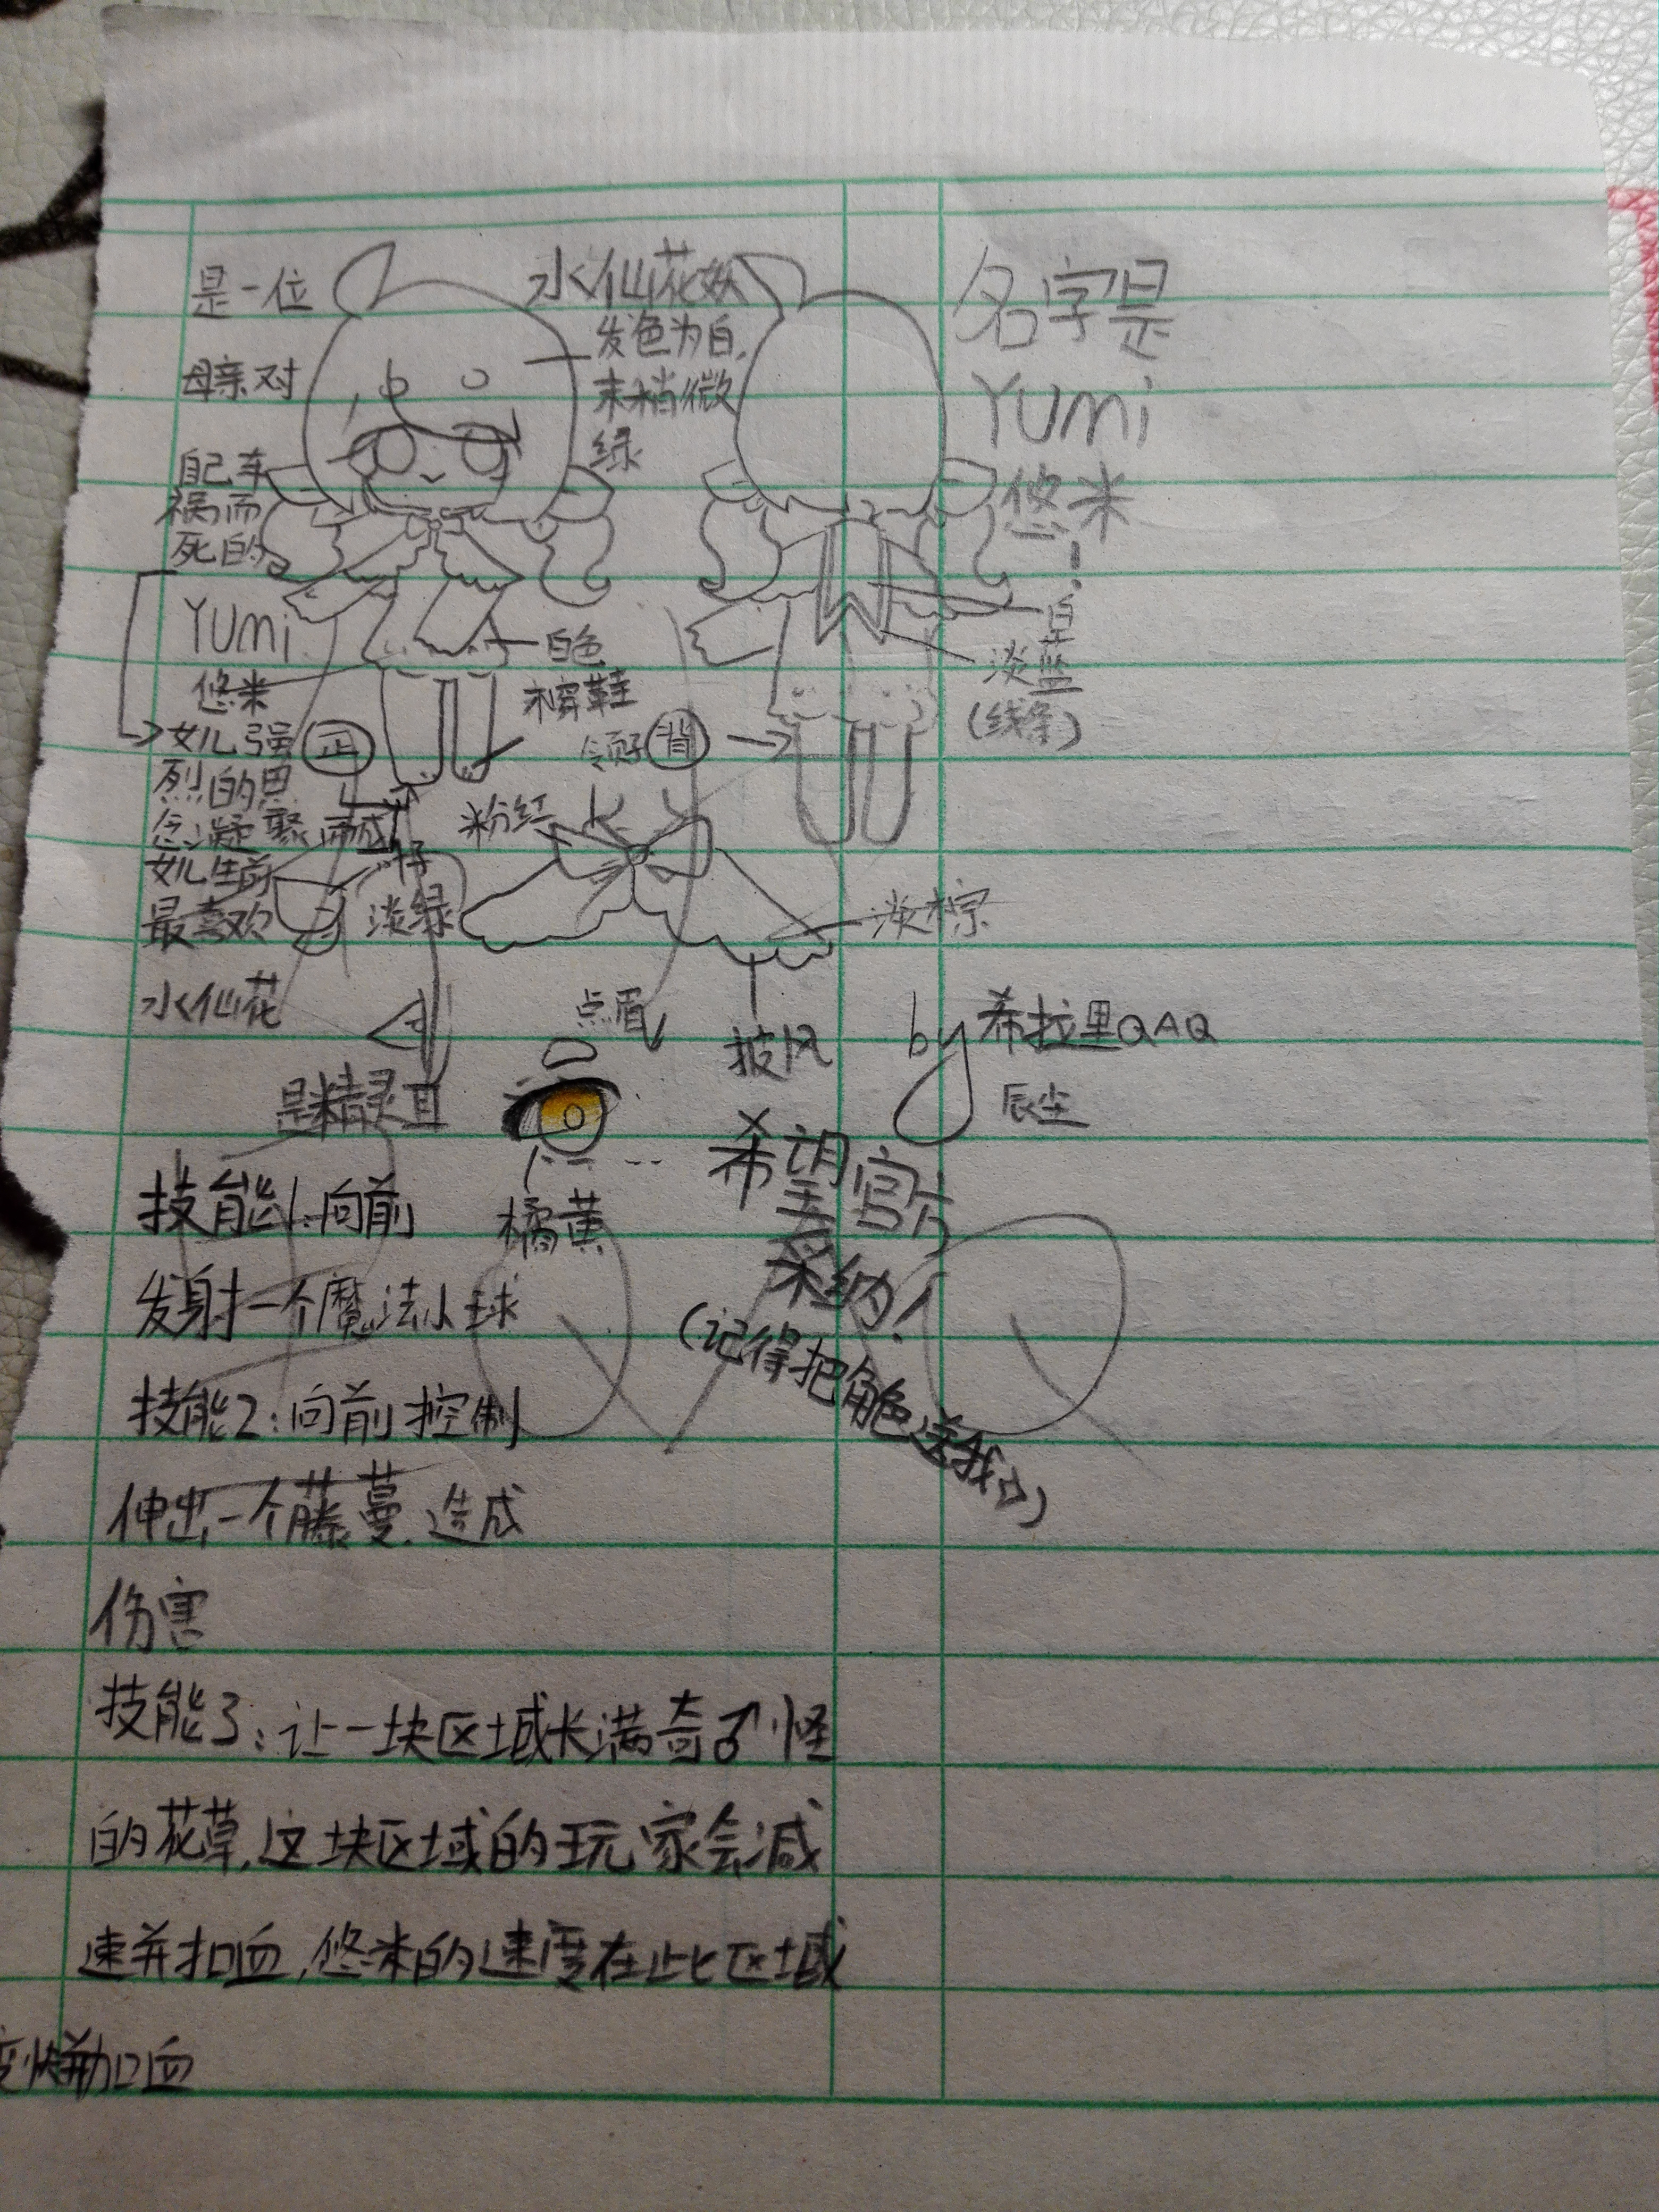 是一位
母亲对
自己车
祸而
死的
Yumi
悠米
女儿强
烈的思
念凝聚而成
女儿生前
最喜欢
水仙花
水仙花妖
发色为白,
末梢微
绿
名字是
Yumi
悠米
!
白
淡蓝
(线条)
白色
棕鞋
正
背
粉红
淡绿
淡棕
披风
点眉
是精灵耳
橘黄
by 希拉里QAQ
辰尘
希望官方
采纳!
(记得把角色送我)
技能1:向前
发射一个魔法小球
技能2:向前控制
伸出一个藤蔓.造成
伤害
技能3:让一块区域长满奇♂怪
的花草,这块区域的玩家会减
速并扣血,悠米的速度在此区域
变快并加血